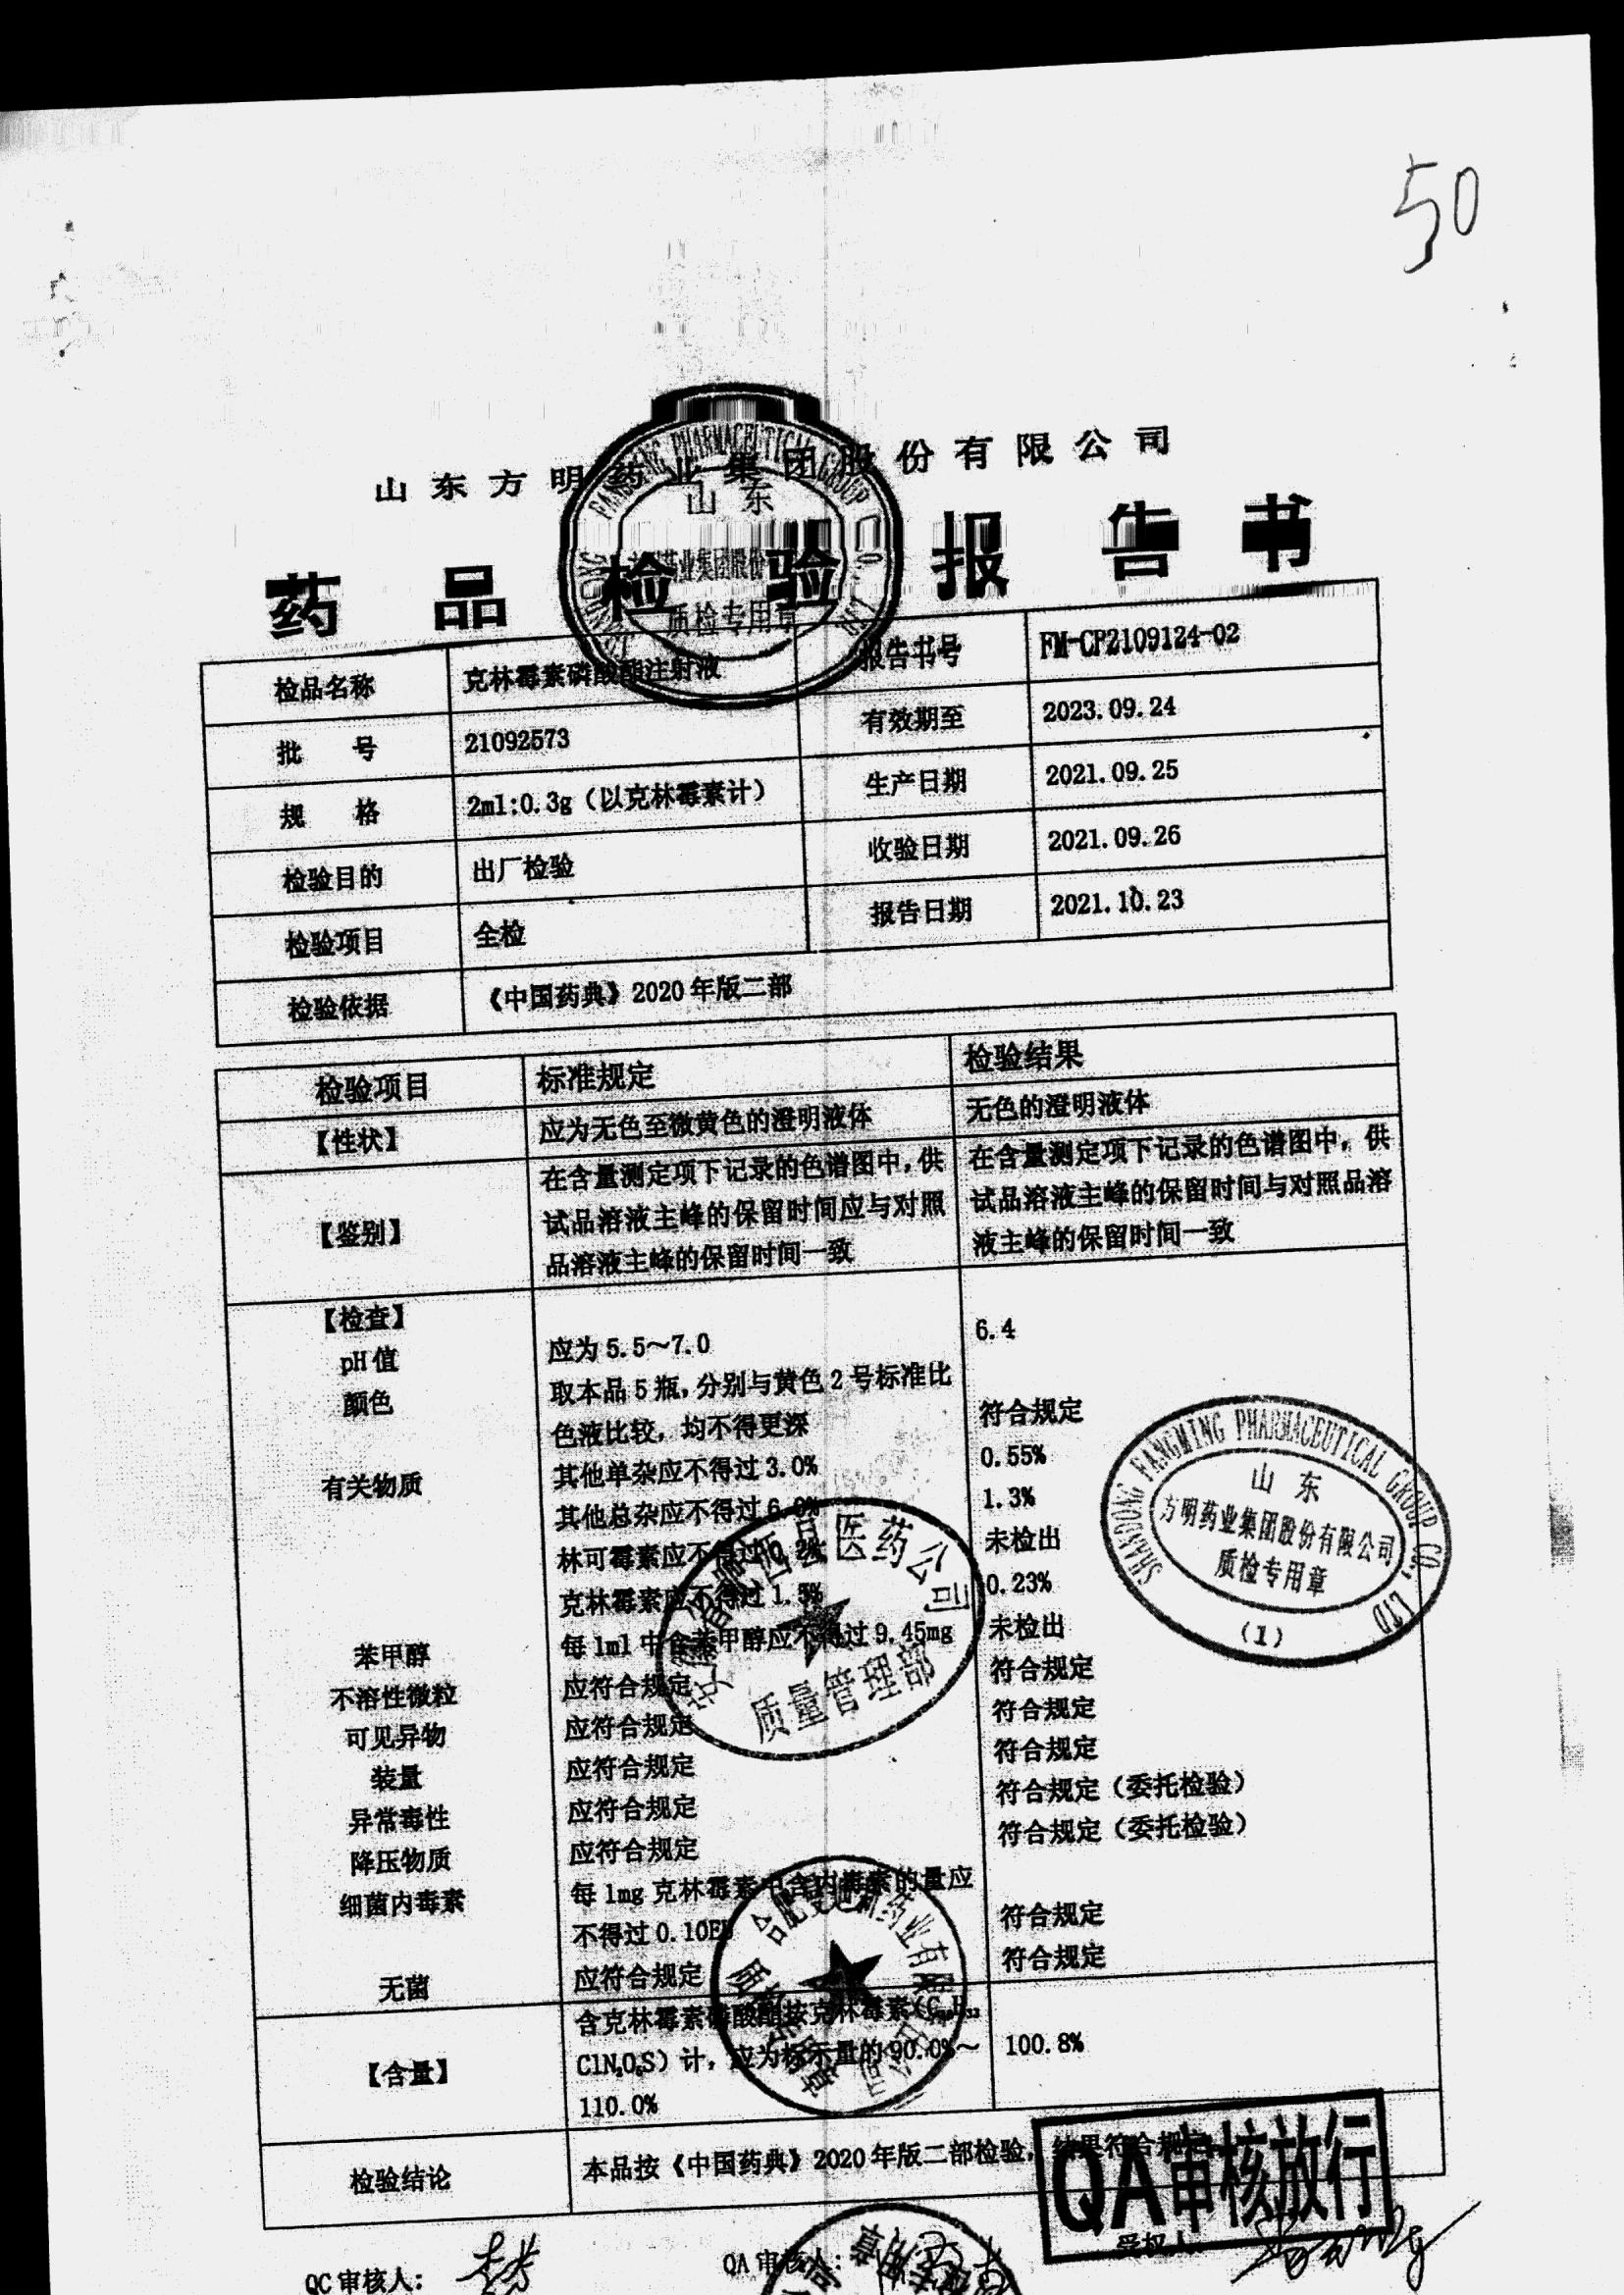 50
山东方明药业集团股份有限公司
药品检验报告书
检品名称 克林霉素磷酸酯注射液 报告书号 FM-CP2109124-02
批 号 21092573 有效期至 2023.09.24
规 格 2ml:0.3g（以克林霉素计） 生产日期 2021.09.25
检验目的 出厂检验 收验日期 2021.09.26
检验项目 全检 报告日期 2021.10.23
检验依据 《中国药典》2020年版二部
检验项目 标准规定 检验结果
【性状】 应为无色至微黄色的澄明液体 无色的澄明液体
【鉴别】
在含量测定项下记录的色谱图中，供
试品溶液主峰的保留时间应与对照
品溶液主峰的保留时间一致
在含量测定项下记录的色谱图中，供
试品溶液主峰的保留时间与对照品溶
液主峰的保留时间一致
【检查】
pH值 应为5.5～7.0 6.4
颜色 取本品5瓶，分别与黄色2号标准比
色液比较，均不得更深 符合规定
有关物质 其他单杂应不得过3.0% 0.55%
其他总杂应不得过6.0% 1.3%
林可霉素应不得过0.2% 未检出
克林霉素应不得过1.5% 0.23%
苯甲醇 每1ml中含苯甲醇应不得过9.45mg 未检出
不溶性微粒 应符合规定 符合规定
可见异物 应符合规定 符合规定
装量 应符合规定 符合规定
异常毒性 应符合规定 符合规定（委托检验）
降压物质 应符合规定 符合规定（委托检验）
细菌内毒素 每1mg克林霉素中含内毒素的量应
不得过0.10EU 符合规定
无菌 应符合规定 符合规定
【含量】
含克林霉素磷酸酯按克林霉素（C₁₈H₃₃
ClN₂O₅S）计，应为标示量的90.0%～
110.0%
100.8%
检验结论 本品按《中国药典》2020年版二部检验，结果符合规定
QC审核人：
QA审核人：
受权人：
QA审核放行
SHANDONG FANGMING PHARMACEUTICAL GROUP CO., LTD
山东
方明药业集团股份有限公司
质检专用章
(1)
SHANDONG FANGMING PHARMACEUTICAL GROUP CO., LTD
山东
药业集团股份
质检专用章
医药公司
质量管理部
药业有限公司